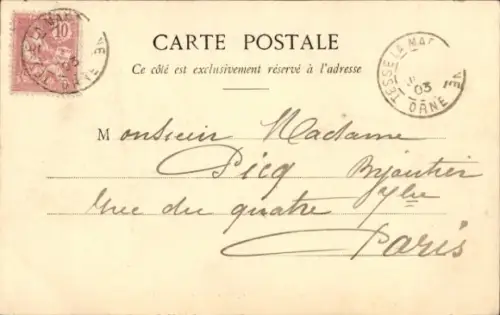 10
CARTE POSTALE
Ce côté est exclusivement réservé à l'adresse
TESSE LA MAD NE
03
ORNE
Monsieur Madame
Picq Bijoutier
Rue du quatre 7bre
Paris